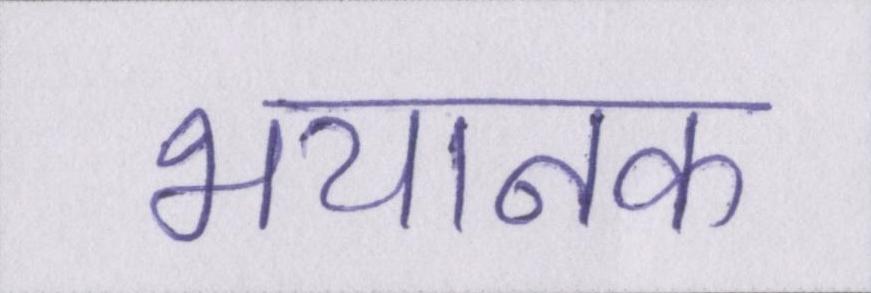 भयानक